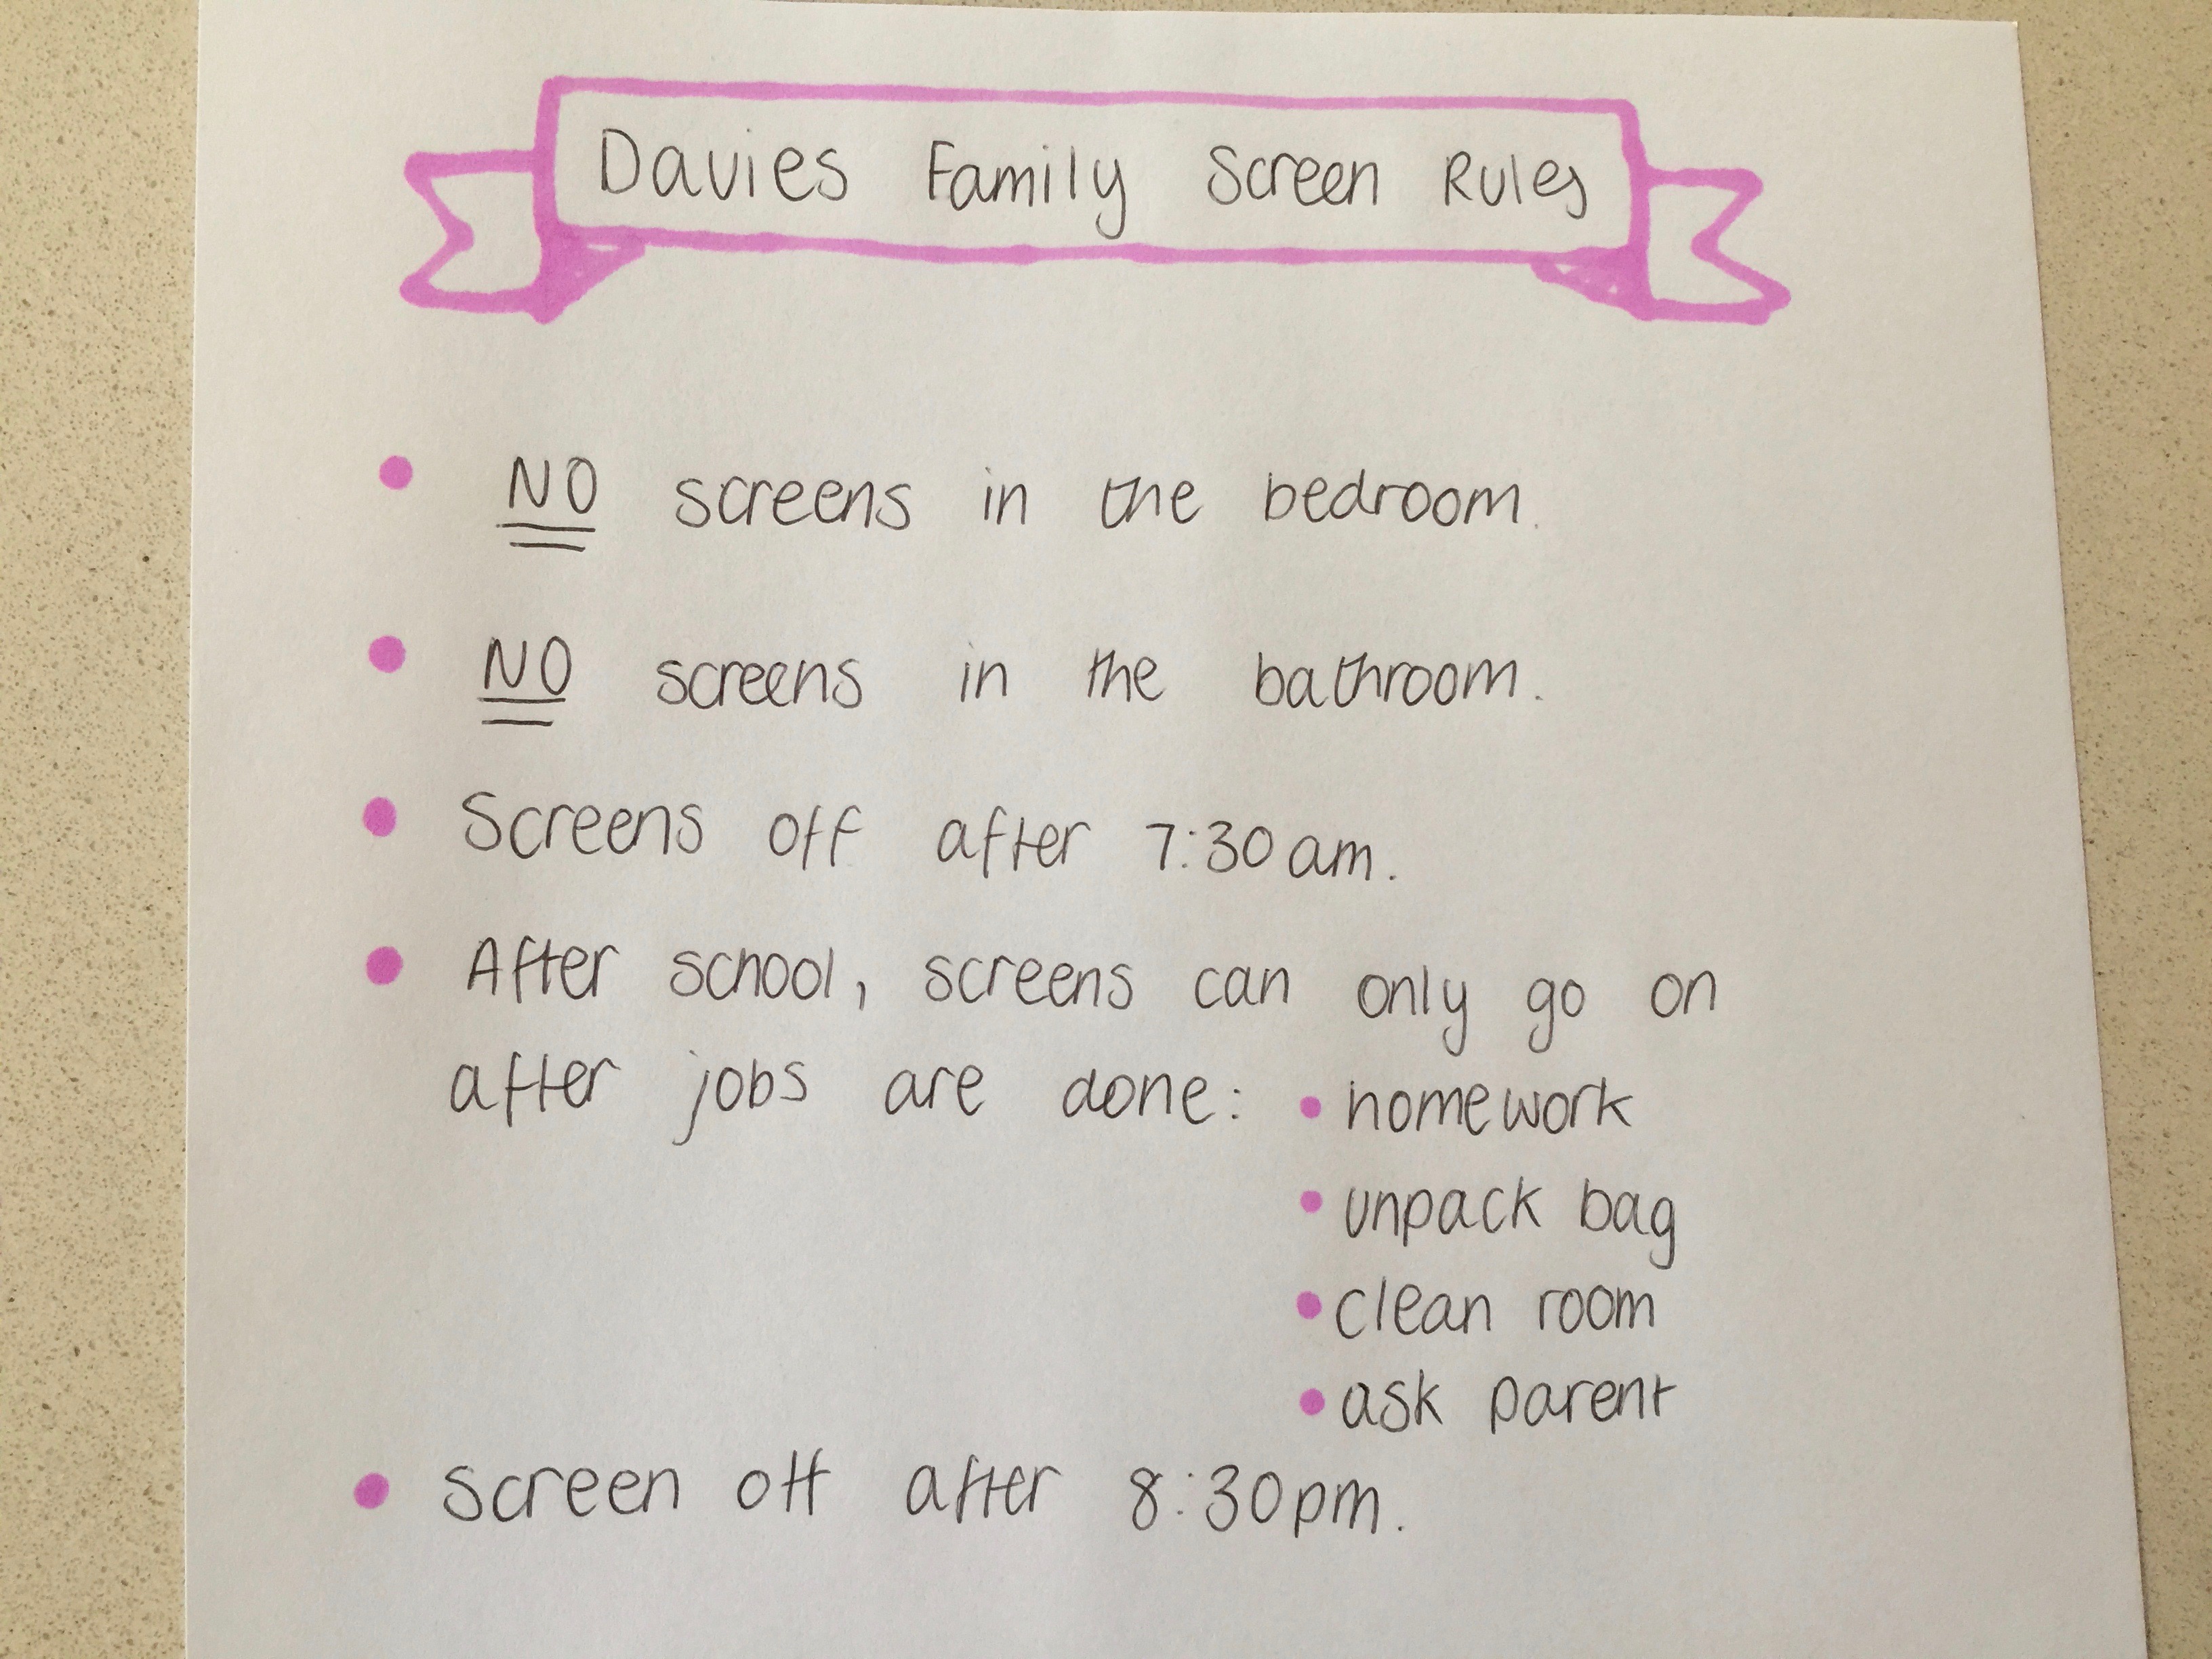 Davies Family Screen Rules
• NO screens in the bedroom.
• NO screens in the bathroom.
• Screens off after 7:30am.
• After school, screens can only go on
after jobs are done: • homework
• unpack bag
• clean room
• ask parent
• screen off after 8:30pm.